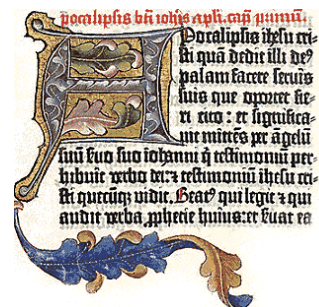 pocalipsis bti iohis apli. capm primū.
Pocalipsis ihesu cri-
sti quā dedit illi de⁹
palam facere seruis
suis que oportet fie-
ri cito : et significa-
uit mittēs per āgelū
suū suo iohanni q̄ testimoniū per-
hibuit verbo dei: ⁊ testimoniū ihesu cri-
sti quecūq vidit. Beat⁹ qui legit ⁊ qui
audit verba ꝓphecie huius: et seruat ea